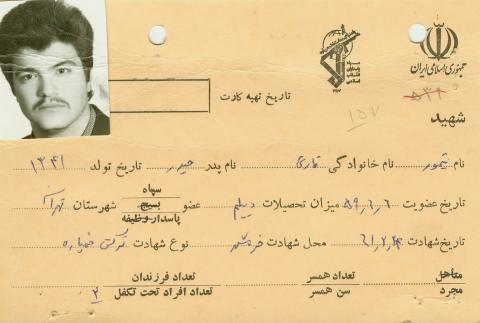 جمهوری اسلامی ایران
۵۳۱
۱۵۷
تاریخ تهیه کارت
شهید
نام تیمور نام خانوادگی قاری نام پدر حیدر تاریخ تولد ۱۳۴۱
تاریخ عضویت ۵۹٫۶٫۶ میزان تحصیلات دیپلم عضو سپاه بسیج پاسدار وظیفه شهرستان تهران
تاریخ شهادت ۶۱٫۲٫۲۴ محل شهادت خرمشهر نوع شهادت ترکش خمپاره
متاهل مجرد تعداد همسر سن همسر تعداد فرزندان تعداد افراد تحت تکفل ۲